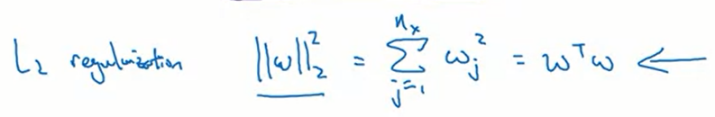 L₂ regularization ||ω||₂² = Σ_{j=1}^{n_x} ω_j² = ω^T ω ←